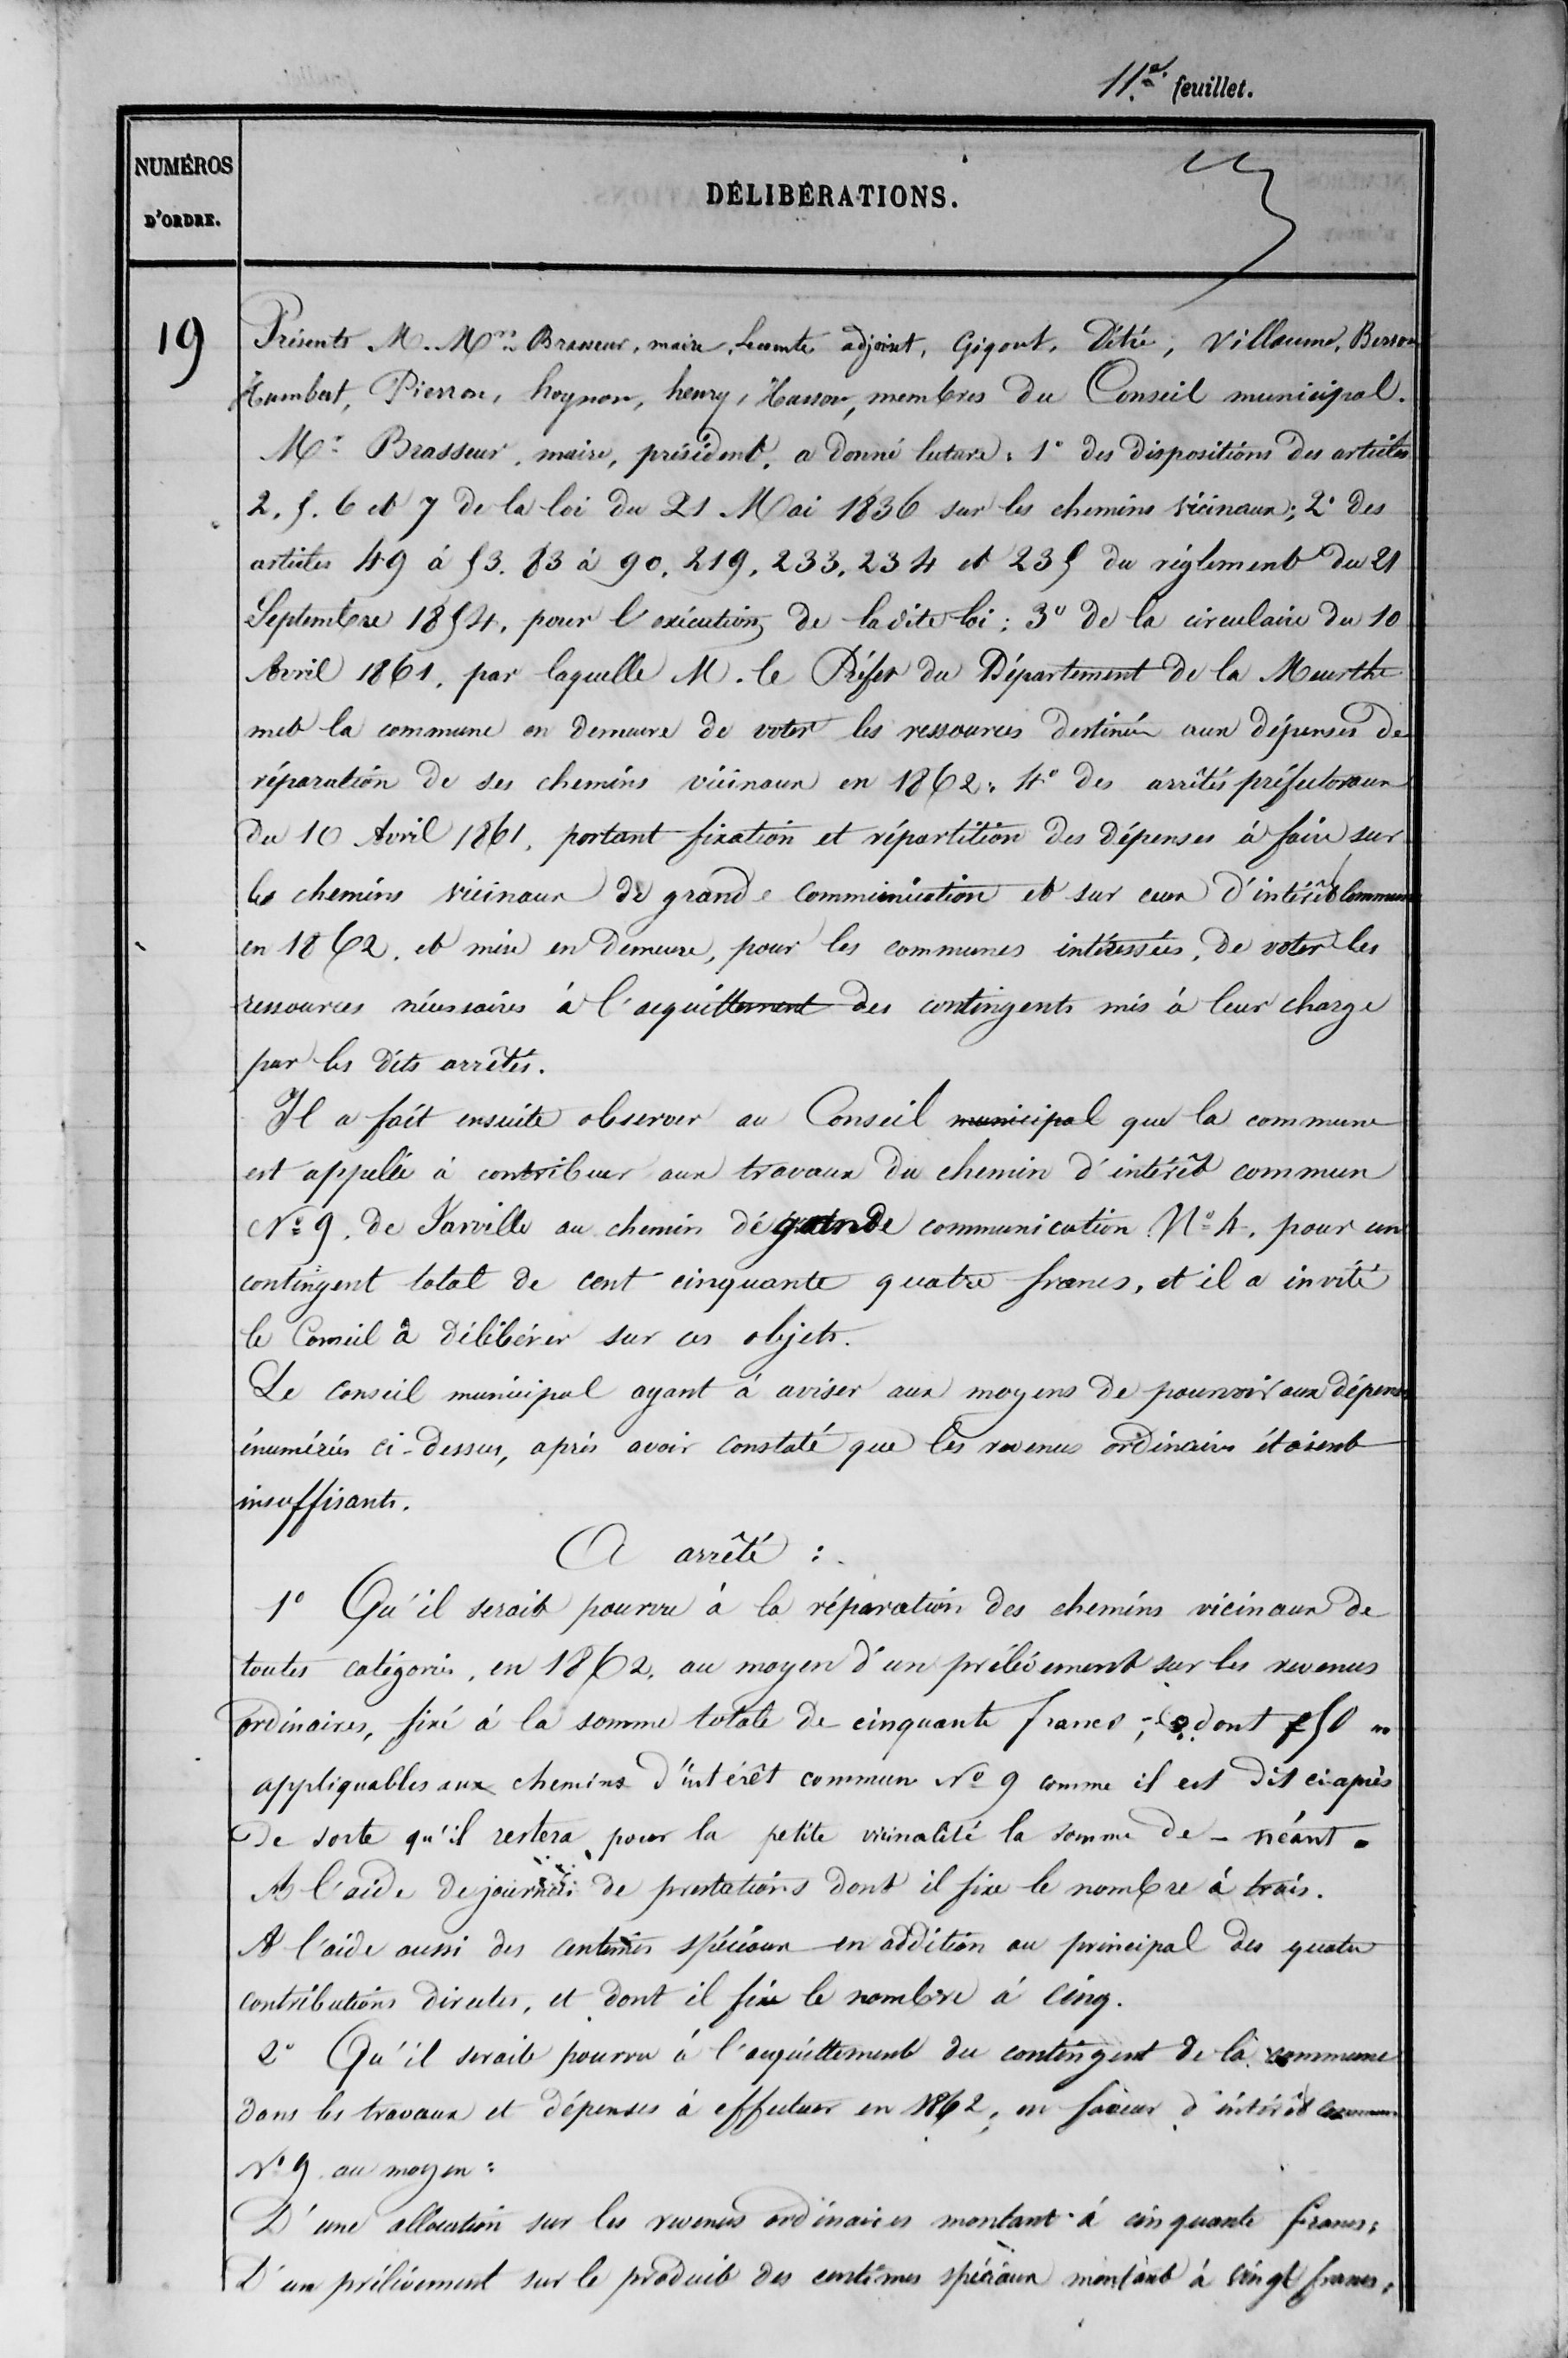 11e. feuillet.
NUMÉROS
D'ORDRE.
DÉLIBÉRATIONS.
19
Présents M. Mrs Brasseur, maire, Lecomte adjoint, Gigout, Détré, Villaume, Besson
Humbert, Pierron, hoynon, henry, Hasson, membres du Conseil municipal.
Mr Brasseur, maire, président, a donné lecture: 1° des dispositions des articles
2, 5, 6 et 7 de la loi du 21 Mai 1836 sur les chemins vicinaux; 2° des
articles 49 à 53, 83 à 90, 219, 233, 234 et 235 du règlement du 21
Septembre 1854, pour l'exécution de ladite loi; 3° de la circulaire du 10
Avril 1861, par laquelle M. le Préfet du Département de la Meurthe
met la commune en demeure de voter les ressources destinées aux dépenses de
réparation de ses chemins vicinaux en 1862; 4° des arrêtés préfectoraux
du 10 Avril 1861, portant fixation et répartition des dépenses à faire sur
les chemins vicinaux de grande communication et sur ceux d'intérêt Commun
en 1862, et mise en demeure, pour les communes intéressées, de voter les
ressources nécessaires à l'acquittement des contingents mis à leur charge
par les dits arrêtés.
Il a fait ensuite observer au Conseil municipal que la commune
est appelée à contribuer aux travaux du chemin d'intérêt commun
N° 9, de Jarville au chemin de grande communication N° 4, pour un
contingent total de cent cinquante quatre francs, et il a invité
le Conseil à délibérer sur ces objets.
Le conseil municipal ayant à aviser aux moyens de pourvoir aux dépenses
énumérées ci-dessus, après avoir constaté que les revenus ordinaires étaient
insuffisants.
A arrêté :
1° Qu'il serait pourvu à la réparation des chemins vicinaux de
toutes catégories, en 1862, au moyen d'un prélèvement sur les revenus
ordinaires, fixé à la somme totale de cinquante francs; dont f 50 "
appliquables aux chemins d'intérêt commun N° 9 comme il est dit ci-après
De sorte qu'il restera pour la petite vicinalité la somme de - néant.
A l'aide de journées de prestations dont il fixe le nombre à trois.
A l'aide aussi des centimes spéciaux en addition au principal des quatre
contributions directes, et dont il fixe le nombre à Cinq.
2° Qu'il serait pourvu à l'acquittement du contingent de la commune
dans les travaux et dépenses à effectuer en 1862, en faveur d'intérêt commun
N° 9 au moyen:
D'une allocation sur les revenus ordinaires montant à cinquante francs;
D'un prélèvement sur le produit des centimes spéciaux montant à vingt francs;